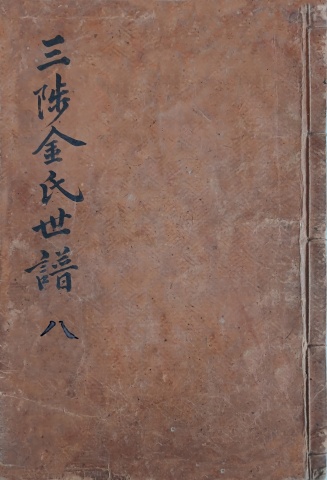 三陟金氏世譜 八